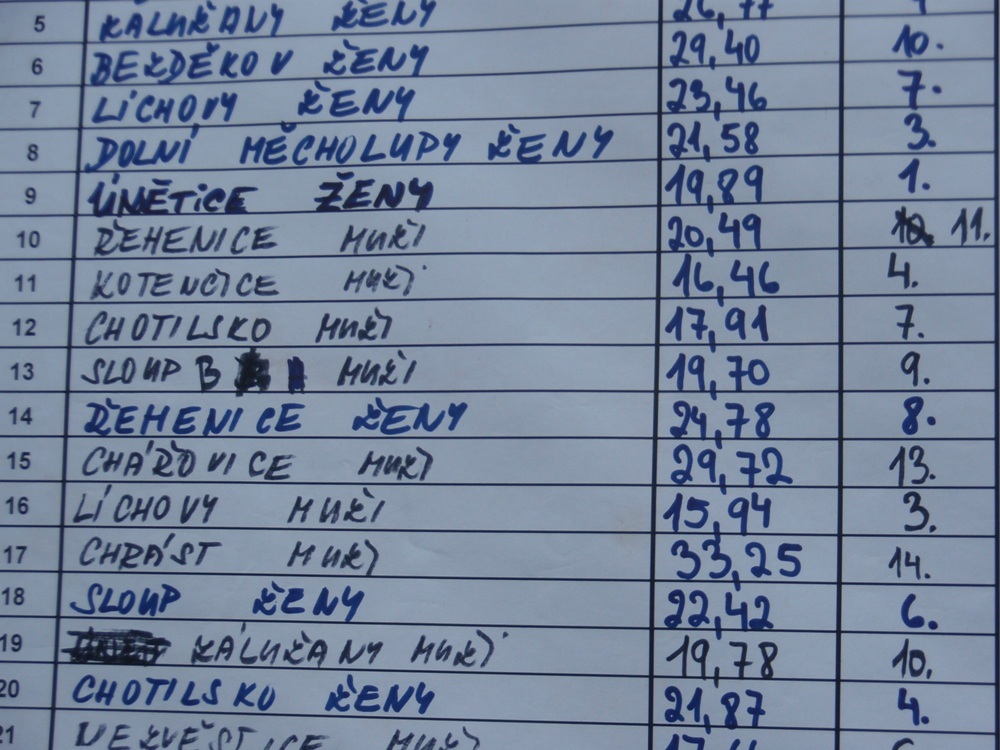 5 ZALUŽANY ŽENY 26,77
6 BEZDĚKOV ŽENY 29,40 10.
7 LÍCHOVY ŽENY 23,46 7.
8 DOLNÍ MĚCHOLUPY ŽENY 21,58 3.
9 ÚNĚTICE ŽENY 19,89 1.
10 ŘEHENICE MUŽI 20,49 11.
11 KOTENČICE MUŽI 16,46 4.
12 CHOTILSKO MUŽI 17,91 7.
13 SLOUP B MUŽI 19,70 9.
14 ŘEHENICE ŽENY 24,78 8.
15 CHÁŘOVICE MUŽI 29,72 13.
16 LÍCHOVY MUŽI 15,94 3.
17 CHRÁST MUŽI 33,25 14.
18 SLOUP ŽENY 22,42 6.
19 ZÁLUŽANY MUŽI 19,78 10.
20 CHOTILSKO ŽENY 21,87 4.
21 NEZVĚSTICE MUŽI